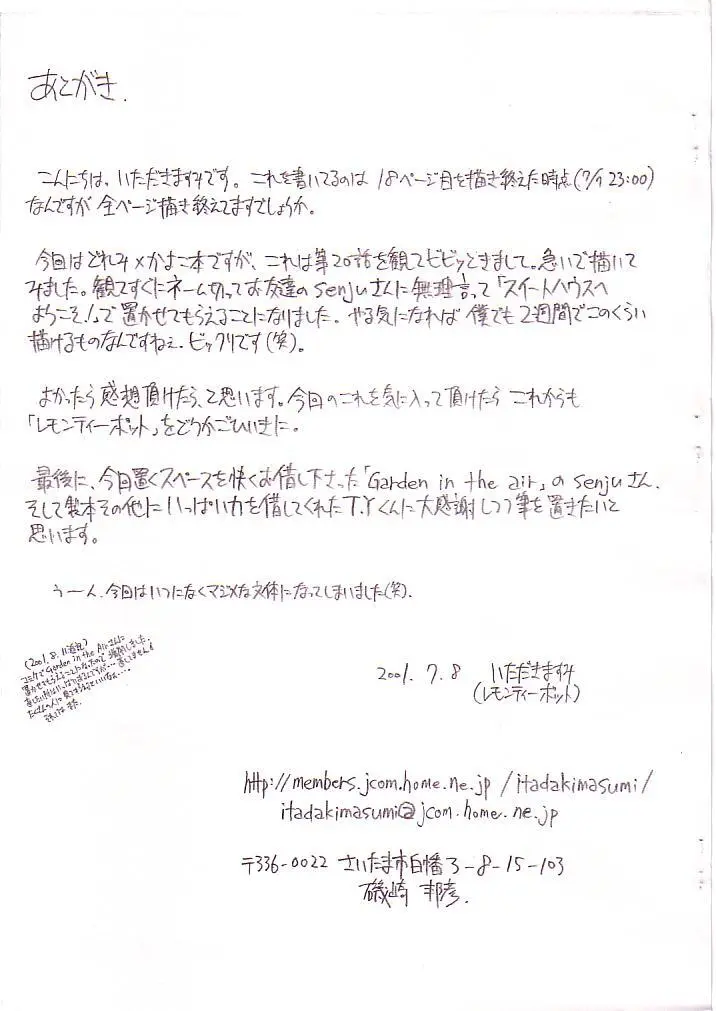 あとがき.
こんにちは、いただきますみです。これを書いてるのは 18ページ目を描き終えた時点(7/7 23:00)
なんですが 全ページ描き終えてますでしょうか。
今回はどれみ×かよこ本ですが、これは第20話を観てビビッときまして。急いで描いて
みました。観てすぐにネーム切ってお友達のsenjuさんに無理言って「スイートハウスへ
ようこそ!」で置かせてもらえることになりました。やる気になれば 僕でも2週間でこのくらい
描けるものなんですねぇ.ビックリです(笑)。
よかったら感想頂けたら、と思います。今回のこれを気に入って頂けたら これからも
「レモンティーポット」をどうかごひいきに。
最後に、今回置くスペースを快くお借し下さった「Garden in the air」のsenjuさん、
そして製本その他にいっぱい力を借してくれたT.Yくんに大感謝しつつ筆を置きたいと
思います。
うーん、今回はいつになくマジメな文体になってしまいました(笑).
(2001.8.11追記)
コミケで"Garden in the Air"さんに
置かせてもらえることになったので増刷しました。
2001. 7. 8 いただきますみ
(レモンティーポット)
http://members.jcom.home.ne.jp/itadakimasumi/
itadakimasumi@jcom.home.ne.jp
〒336-0022 さいたま市白幡3-8-15-103
磯崎 邦彦.